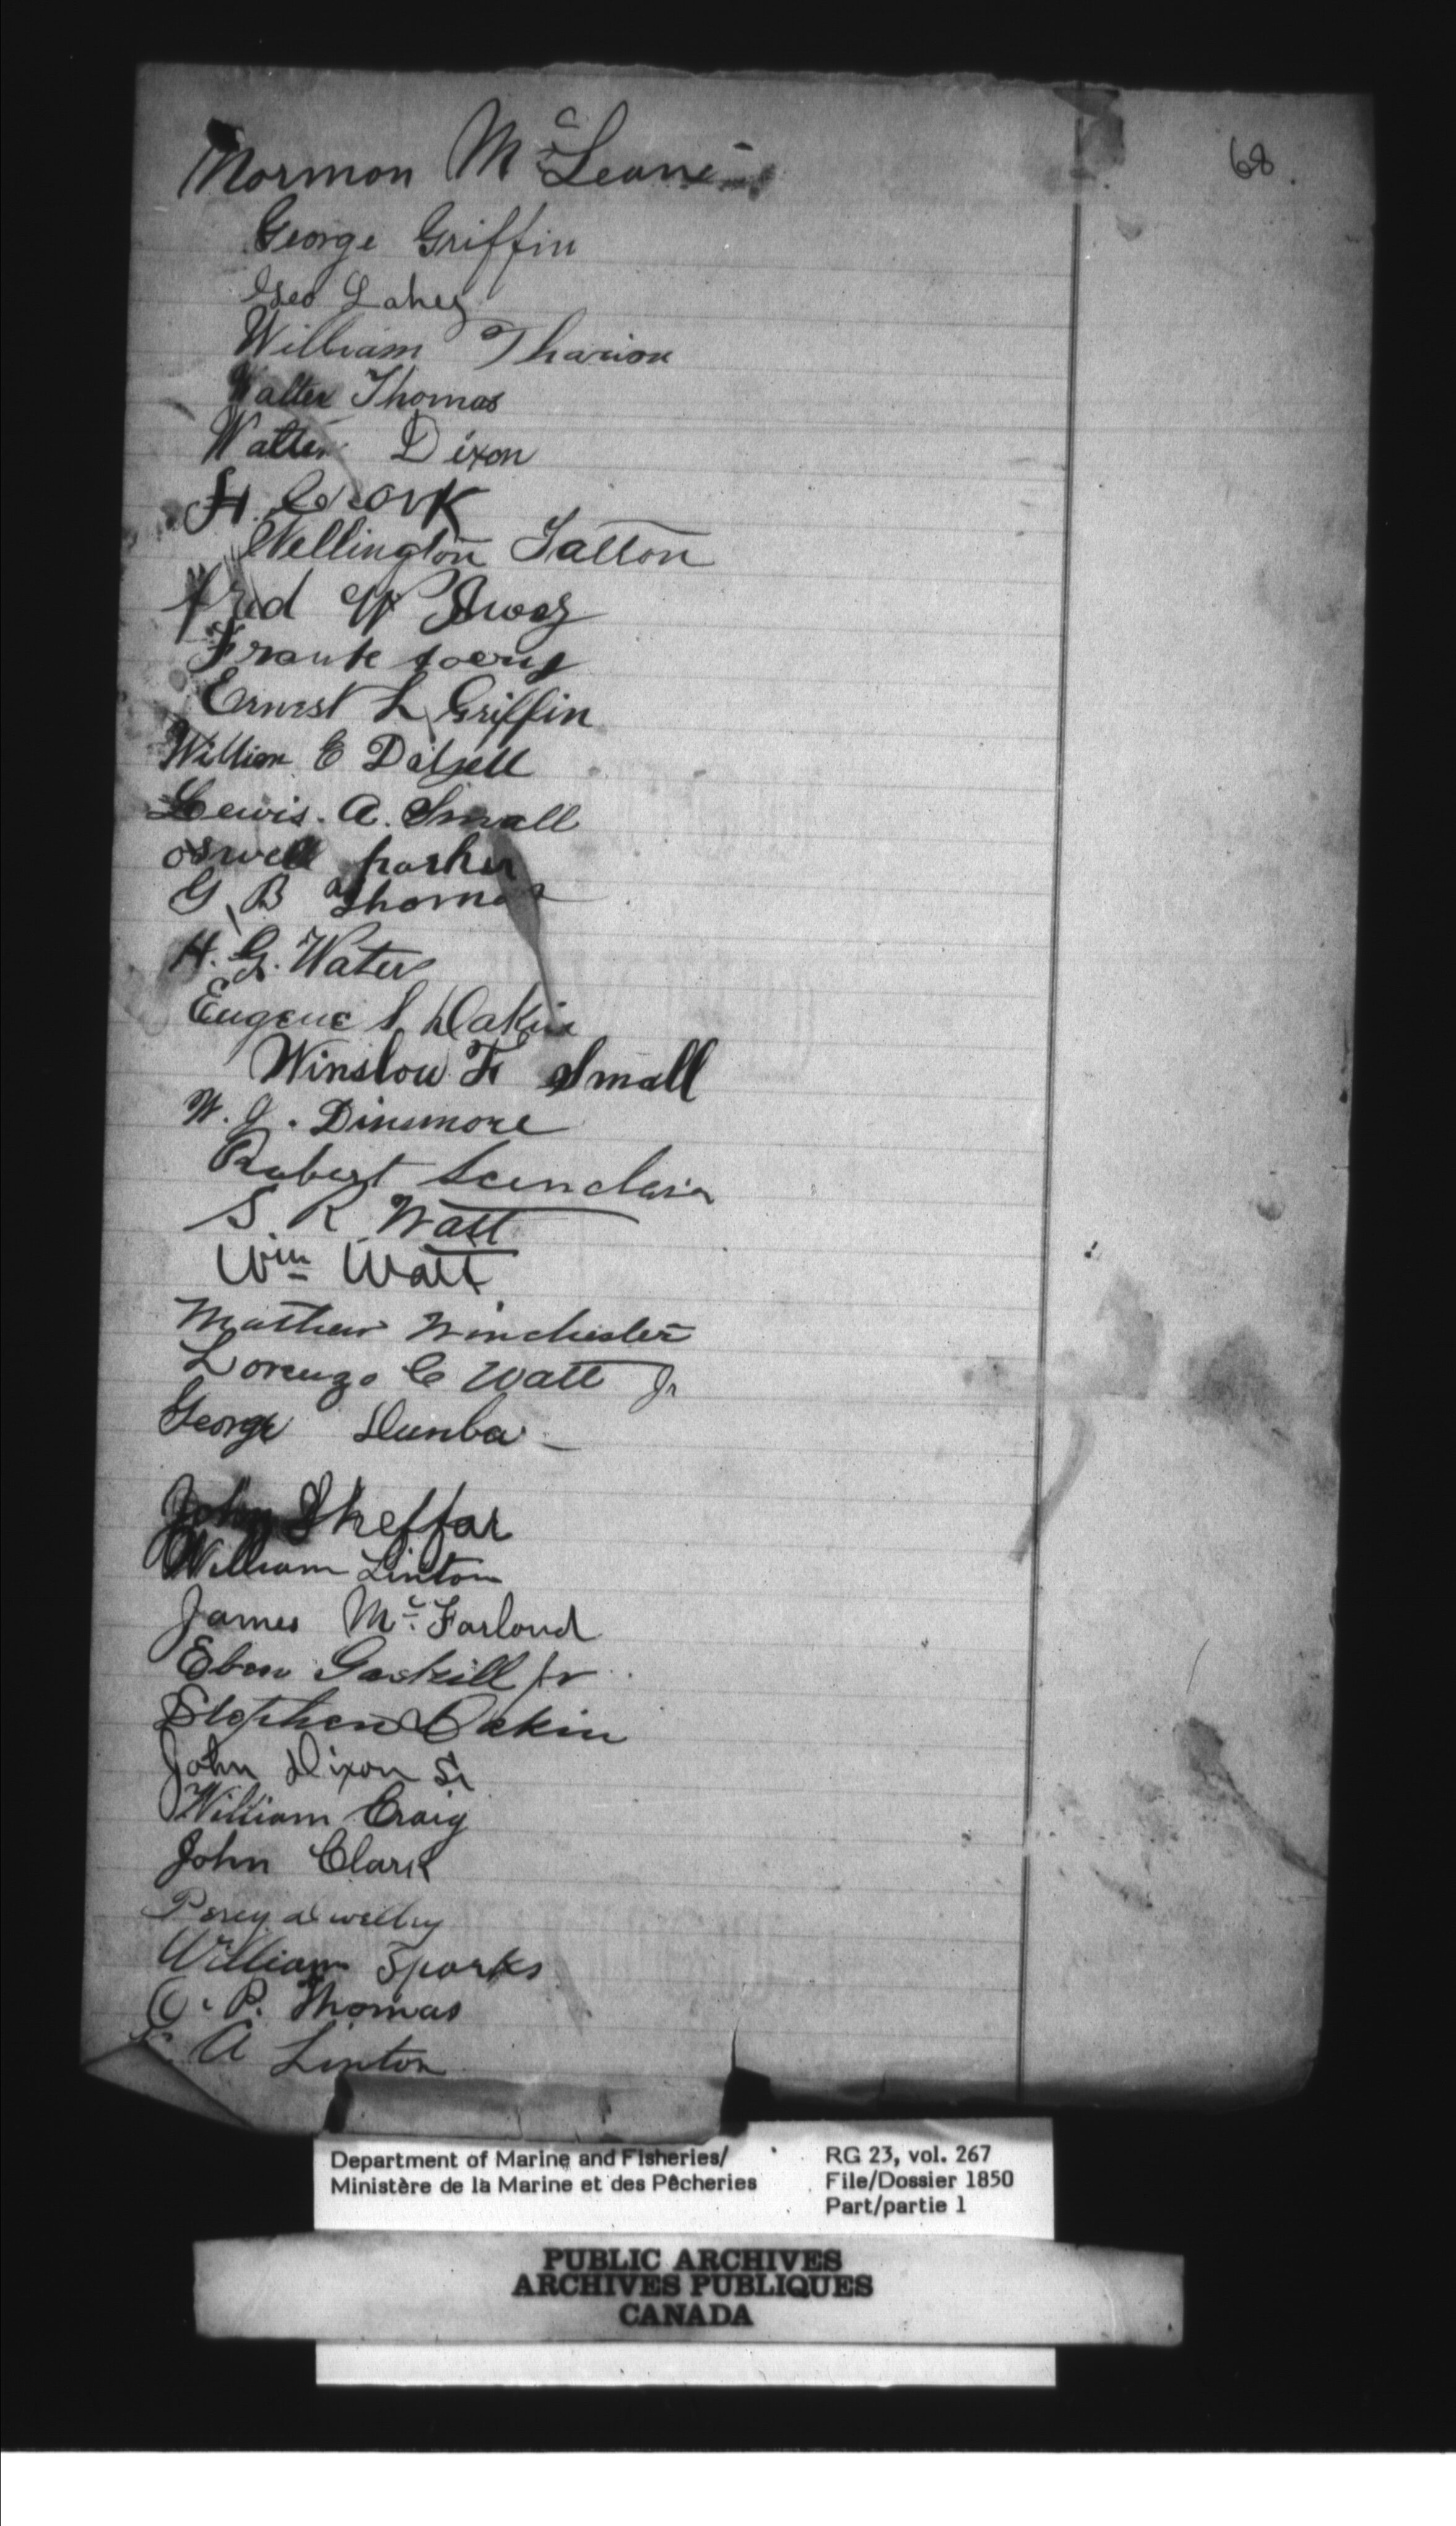 68
Normon McLeane
George Griffin
Geo Lahey
William Tharion
Walter Thomas
Walter Dixon
H.
Wellington Tatton
Fred W
Frank
Ernest L Griffin
William E Dalzell
Lewis. A. Small
oswell parker
G B Thomas
H. G. Water
Eugene S. Dakin
Winslow F Small
W. J. Dinsmore
Robert Scenclair
S. R Watt
Wm Watt
Mathew Winchester
Lorenzo C Watt Jr
George Dunbar
John Sheffar
William Linton
James Mc Farland
Eben Gaskill Jr
Stephen Dakin
John Dixon Sr
William Craig
John Clark
Percy
William Sparks
O. P. Thomas
A Linton
Department of Marine and Fisheries/
Ministère de la Marine et des Pêcheries
RG 23, vol. 267
File/Dossier 1850
Part/partie 1
PUBLIC ARCHIVES
ARCHIVES PUBLIQUES
CANADA